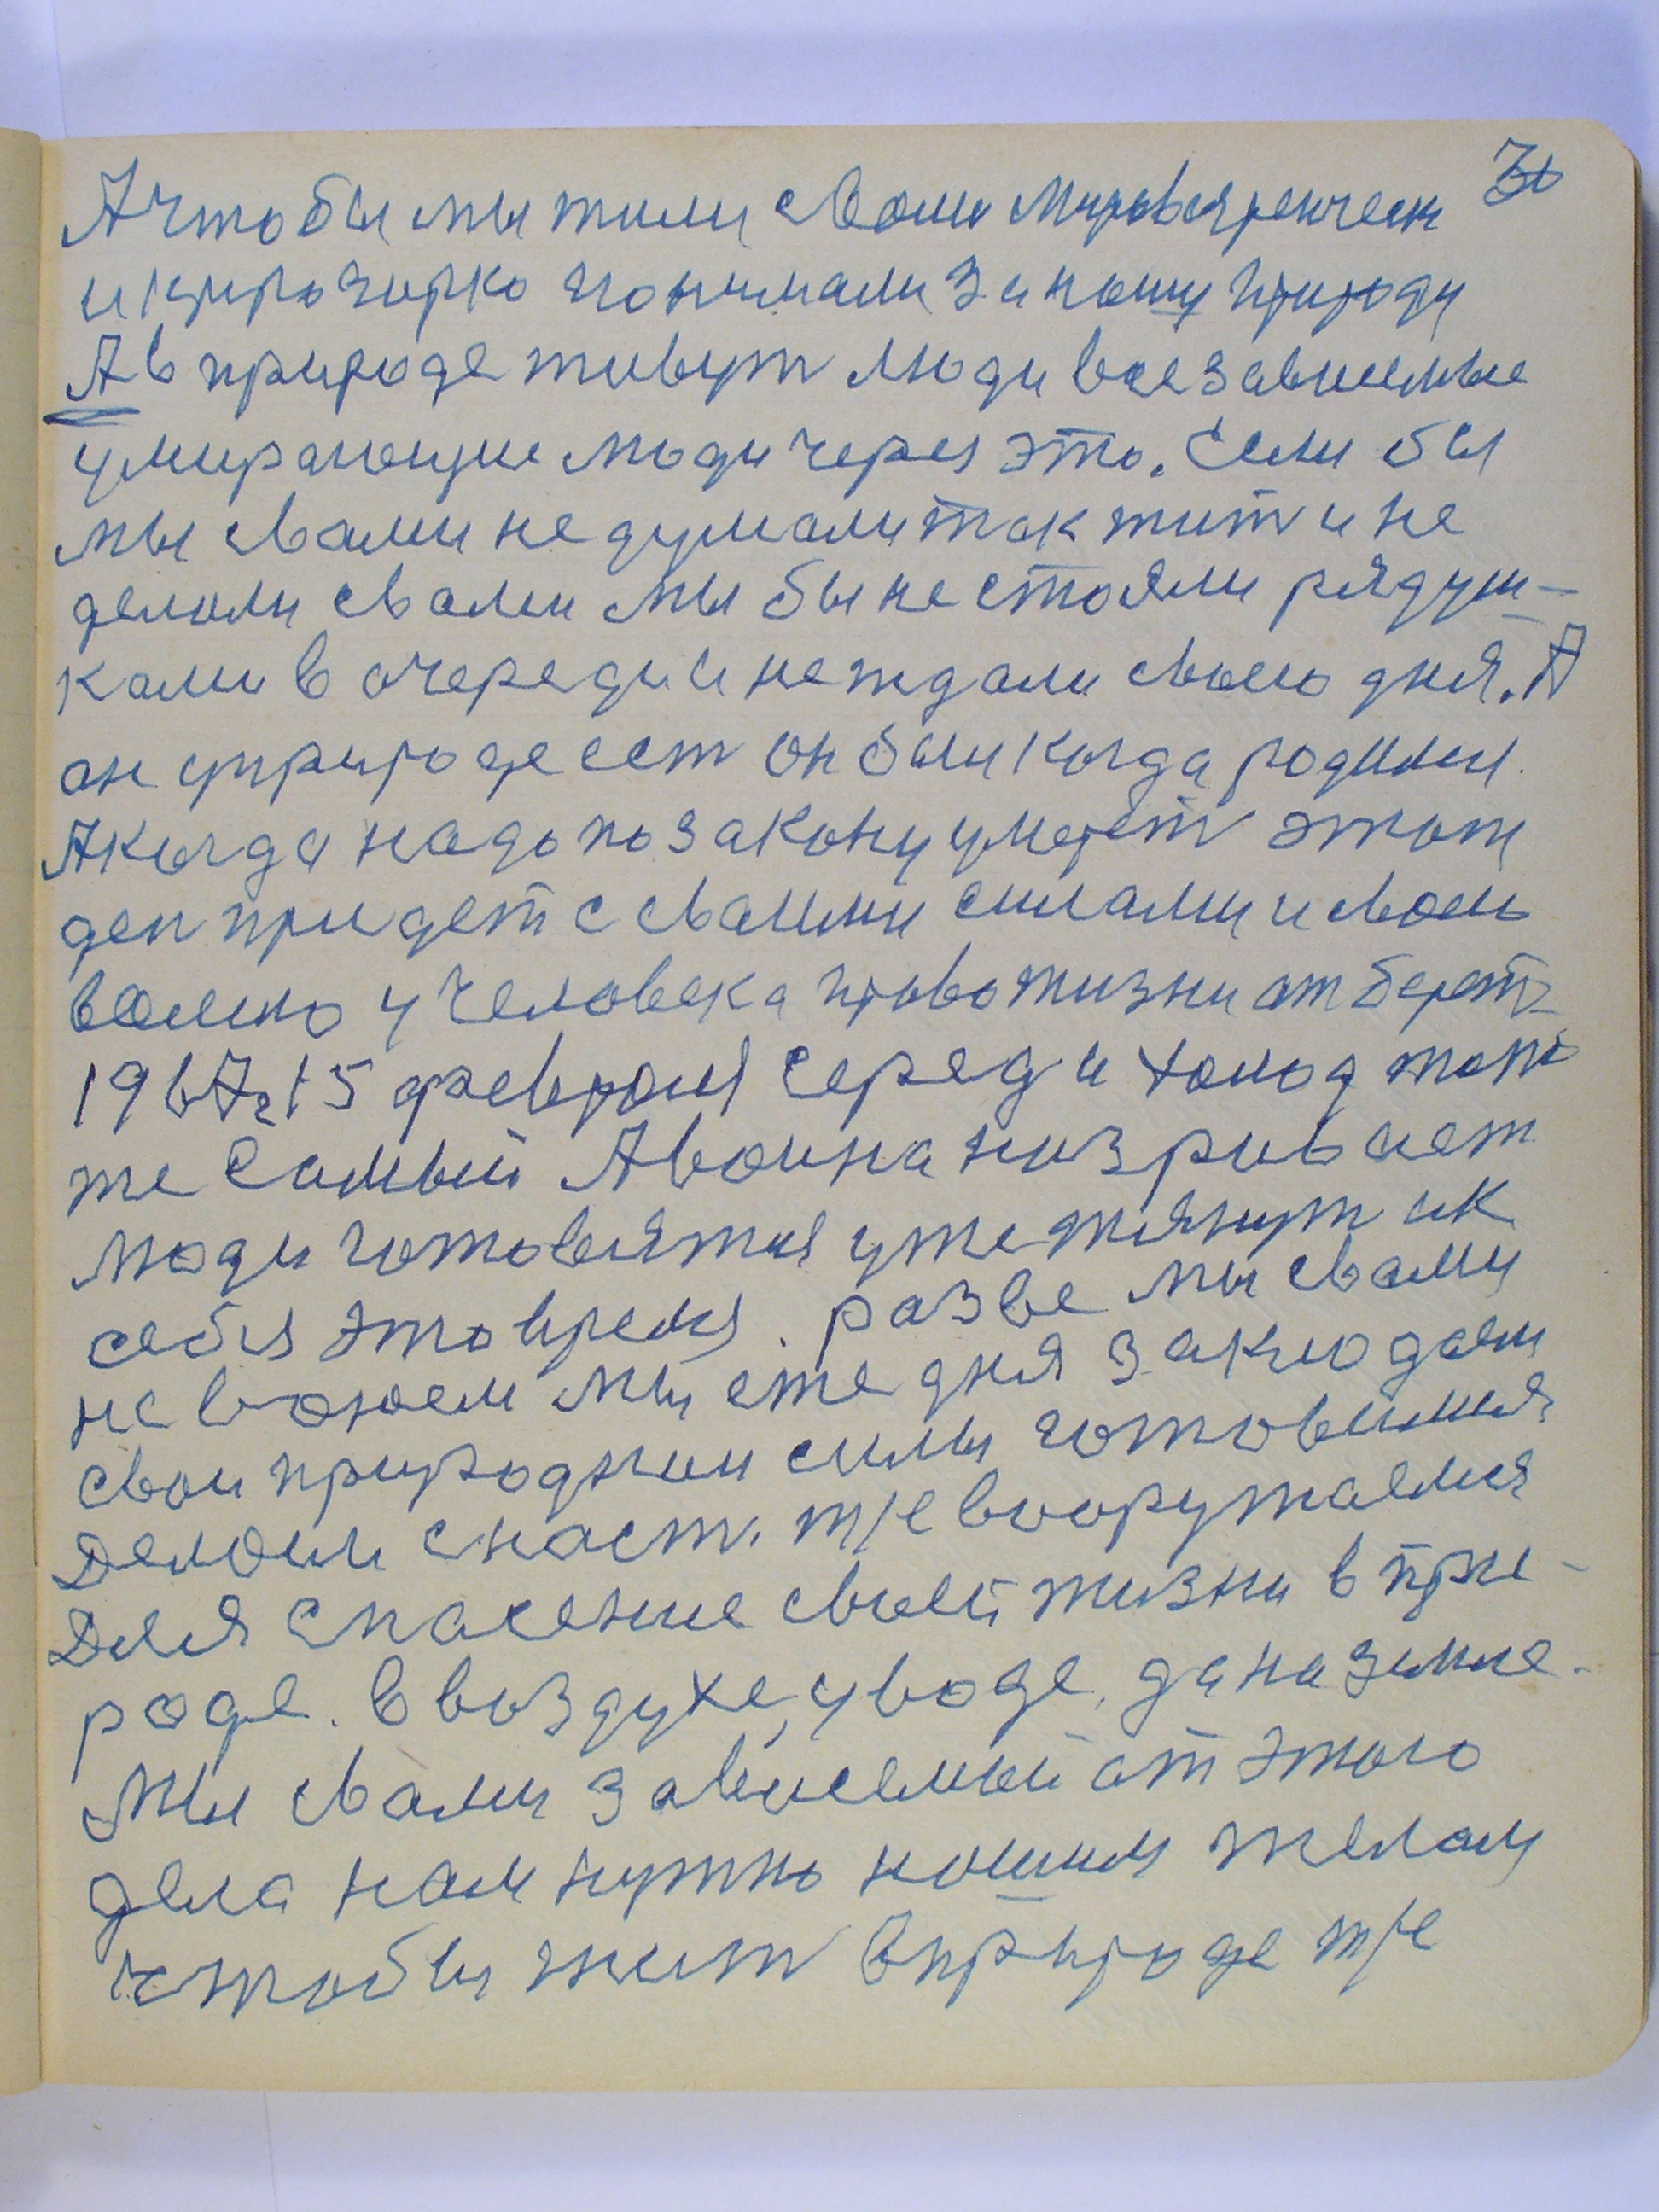 31
А чтобы мы жили своим Мировозренчем
и широчирко понимали за нашу природу
А в природе живут люди все зависемые
умирающие люди через это. Если бы
мы свами не думали так жит и не
делали свами мы бы не стояли рядуш-
ками в очереди и не ждали своего дня. А
он уприроде ест он был когда родился.
А когда надо по закону умерет этот
ден придет с своими силами и свою
волею у человека право жизни отберет
1967г 15 февраля Середа и холод тот
же самый А воина назривает
люди готовятся уже тянут ик
себя это время. разве мы свами
не воюем мы еже дня закладаем
свои природнии силы готовимся
Делаем снаст. т/е вооружаемся
Для спасение своей жизни в при-
роде. В воздухе, уводе, да на земле.
Мы свами зависемый от этого
дела нам нужно нашим телам
чтобы жит в природе т/е